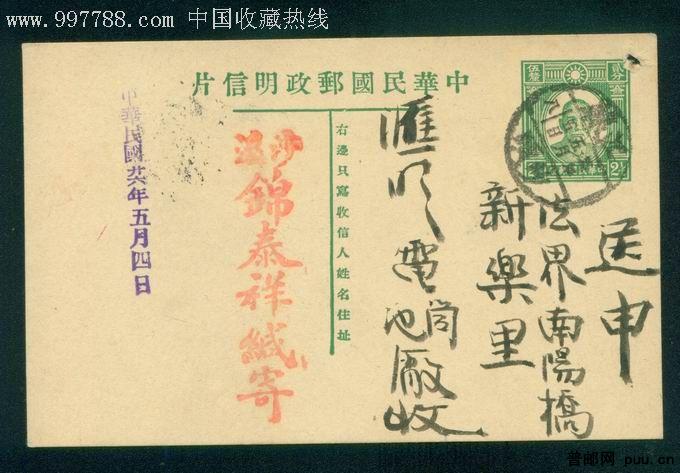 www.997788.com 中国收藏热线
中華民國郵政明信片
伍釐 貳分
2½
右邊只寫收信人姓名住址
送申
法界南陽橋
新樂里
匯明電筒電池廠收
沙溫
錦泰祥緘寄
中華民國廿六年五月四日
普邮网 puu.cn